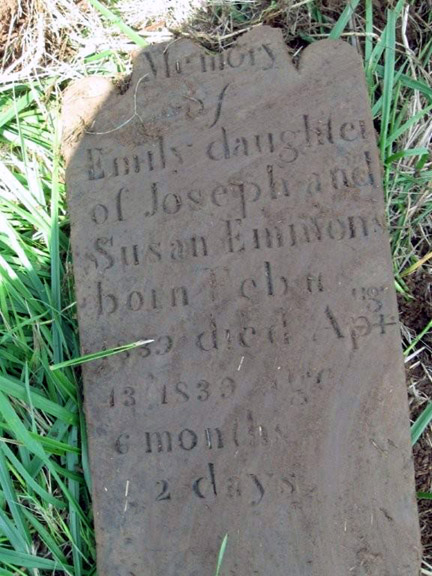 Memory
of
Emily daughter
of Joseph and
Susan Emmons
born
died
13 1839
6 months
2 days